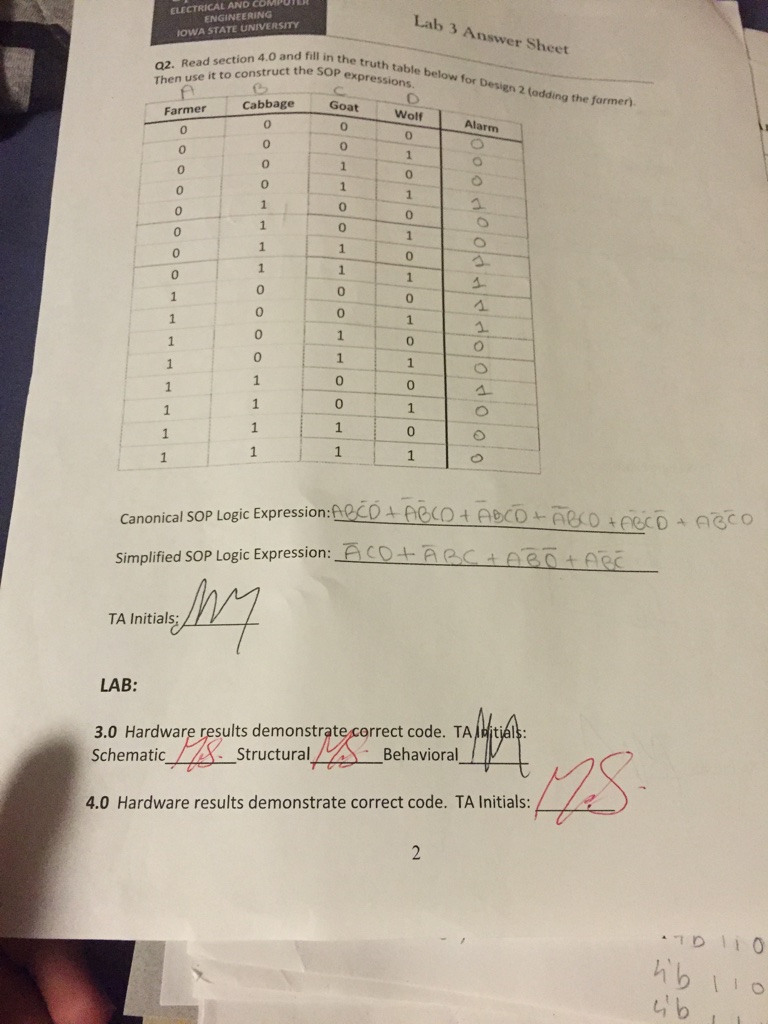 ELECTRICAL AND COMPUTER
ENGINEERING
IOWA STATE UNIVERSITY
Lab 3 Answer Sheet
Q2. Read section 4.0 and fill in the truth table below for Design 2 (adding the farmer).
Then use it to construct the SOP expressions.
A B C D
Farmer Cabbage Goat Wolf Alarm
0 0 0 0 0
0 0 0 1 0
0 0 1 0 0
0 0 1 1 1
0 1 0 0 0
0 1 0 1 0
0 1 1 0 1
0 1 1 1 1
1 0 0 0 1
1 0 0 1 1
1 0 1 0 0
1 0 1 1 0
1 1 0 0 1
1 1 0 1 0
1 1 1 0 0
1 1 1 1 0
Canonical SOP Logic Expression: AB̄C̄D̄ + ĀB̄CD + ĀBCD̄ + ĀBCD + ABC̄D̄ + AB̄C̄D
Simplified SOP Logic Expression: ĀCD + ĀBC + AB̄D̄ + AB̄C̄
TA Initials:
LAB:
3.0 Hardware results demonstrate correct code. TA Initials:
Schematic M.S. Structural M.S. Behavioral
4.0 Hardware results demonstrate correct code. TA Initials: M.S.
2